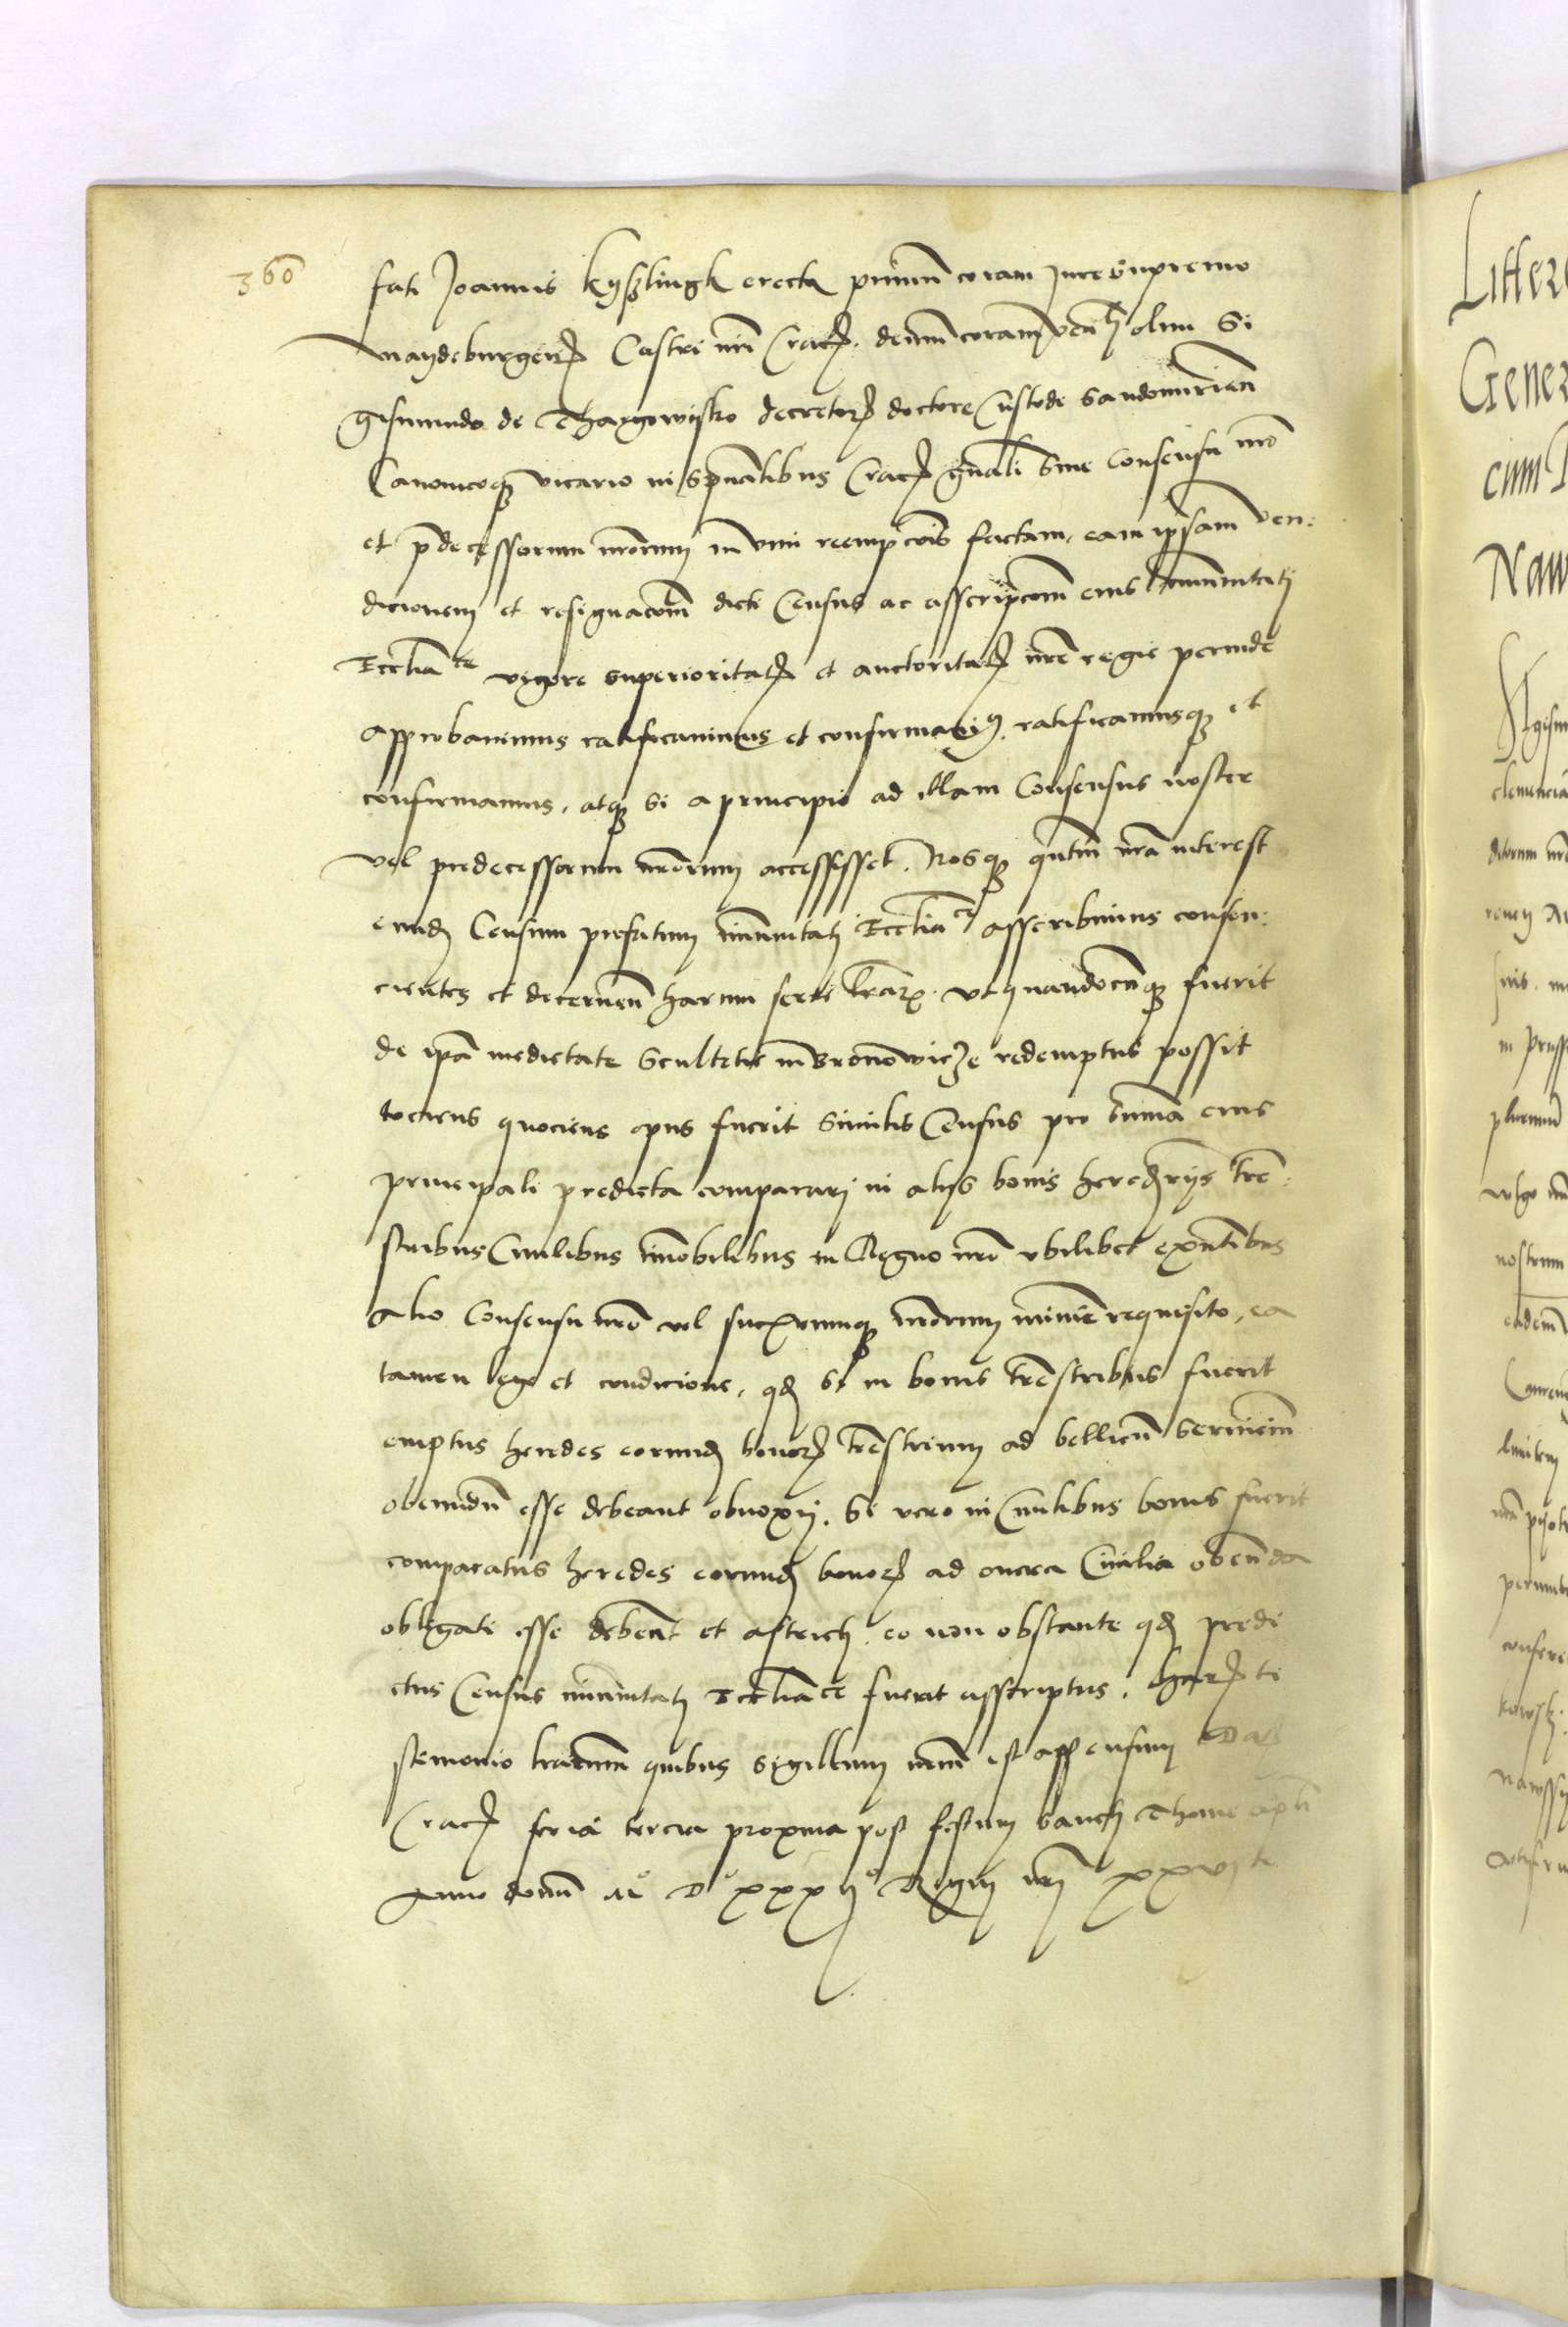 360
fati Joannis Kyßlingk erecta primum coram Jure Supremo
maydeburgen Castri nri Crac. demum coram ven olim Si
gismundo de Thargowysko decretor doctore Custode Sandomirien
Canonicoq vicario in Spualibus Crac gnali Sine Consensu nro
et pdecessorum nrorum in vim reempcois factam, eam ipsam ven:
dicionem et resignacom dicti Census ac asscripcom eius immunitati
Ecclia ce vigore superioritat et auctoritat nre regie perinde
approbavimus ratificavimus et confirmavim ratificamusq et
confirmamus, atq si a principio ad illam Consensus noster
vel predecessorum nrorum accessisset. Nosq qntum nra interest
eund Censum prefatum immunitati Ecclia ce asscribimus consen:
cientes et decernen harum serie lrar. ut quandocunq fuerit
de ipa medietate Scultetie in Bronowicze redemptus possit
tociens quociens opus fuerit Similis Census pro Summa eius
principali predicta comparari in alijs bonis heredrijs tre:
stribus Civilibus immobilibus in Regno nro ubilibet exntibus
Alio Consensu nro vel succrumq nrorum minime requisito, ea
tamen lege et condicione, qd si in bonis trestribus fuerit
emptus heredes eorund bonor trestrium ad bellicum Servicium
obeundum esse debeant obnoxij. Si vero in Civilibus bonis fuerit
comparatus heredes eorund bonor ad onera Civilia obeunda
obligati esse debent et astricti. eo non obstante qd predi
ctus Census immunitati Ecclia ce fuerit asscriptus. Har te
stimonio lrarum quibus Sigillum nrum est appensum Dat
Crac feria tercia proxima post festum Sancti Thome apli
Anno domini M° D° xxxij° Regni nri xxvj to
Littere
Gener
cum
Naw
clemencia
nostrum
eadem
confere
nawssy